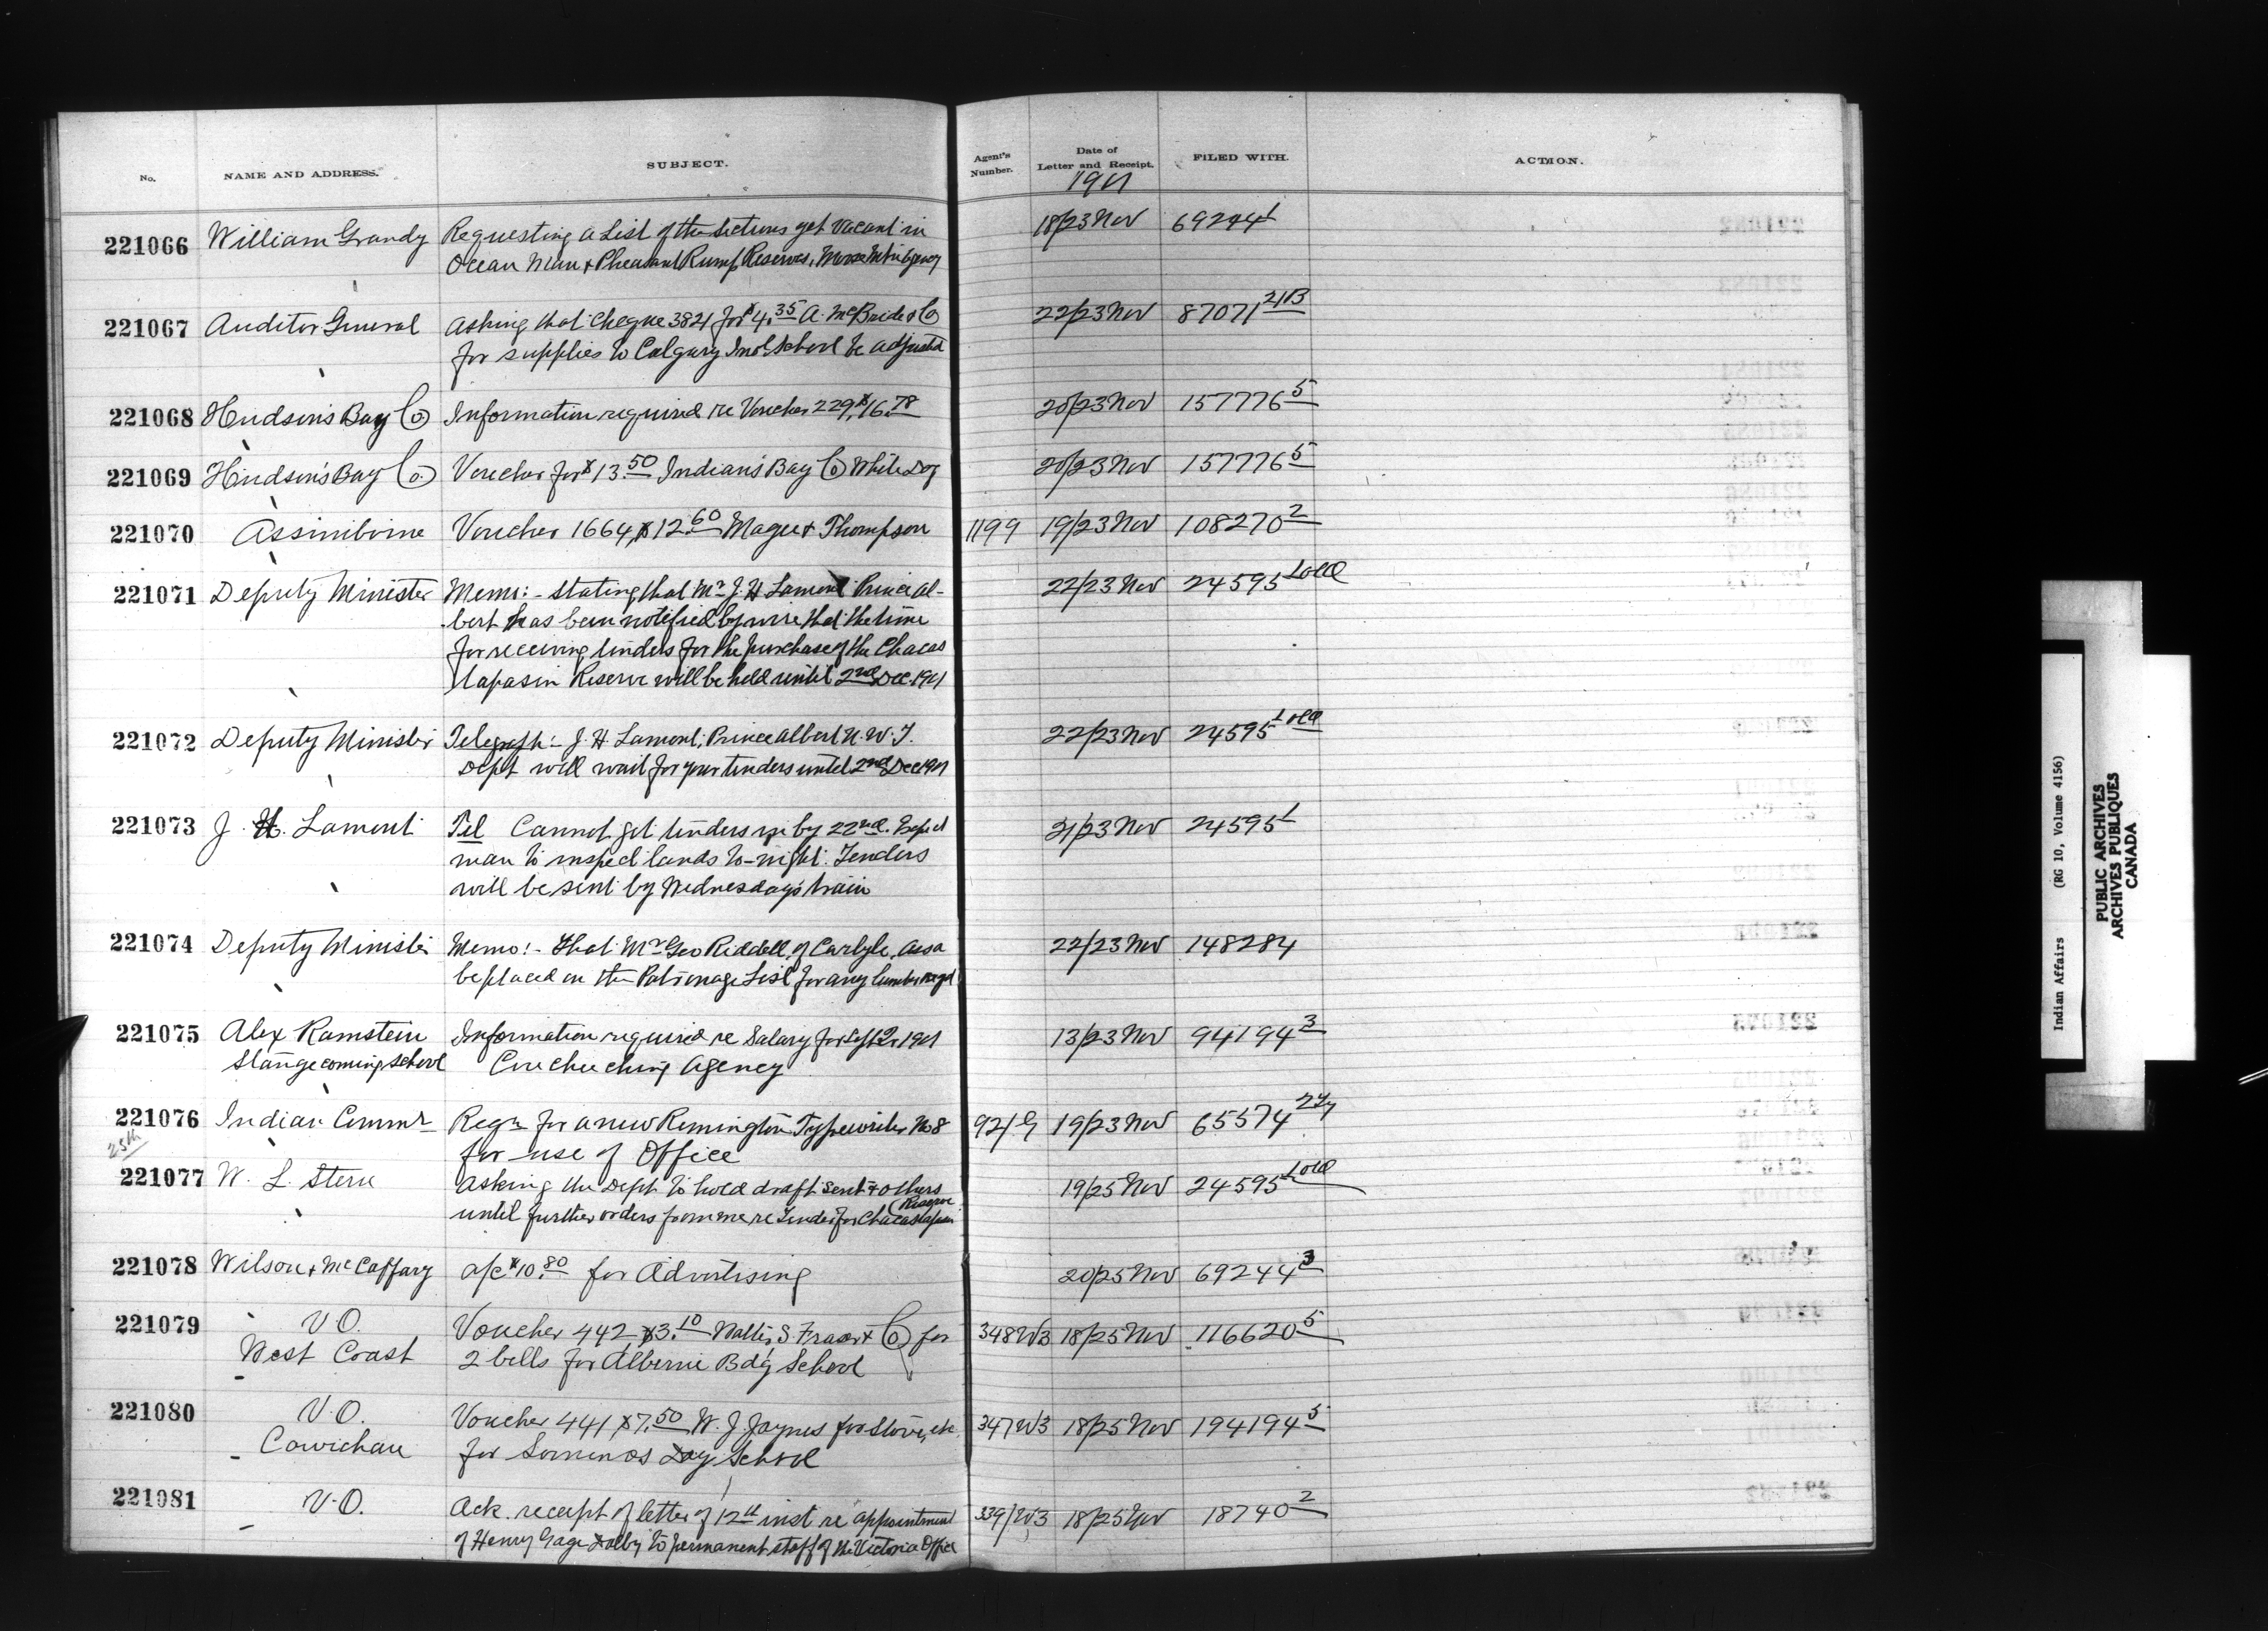 No. NAME AND ADDRESS. SUBJECT. Agent's Number. Date of Letter and Receipt. FILED WITH. ACTION.
1901
221066 William Grandy Requesting a List of the Sections yet Vacant in 18/23 Nov 69244 1
Ocean Man & Pheasant Rump Reserves, Moose Mtn Agency
221067 Auditor General Asking that cheque 3821 for $4.35 A. McBride & Co 22/23 Nov 87071 21B
for supplies to Calgary Indl School be adjusted
221068 Hudson's Bay Co Information required re Voucher 229, $16.78 20/23 Nov 157776 5
221069 Hudson's Bay Co. Voucher for $13.50 Indian's Bay Co White Dog 20/23 Nov 157776 5
221070 Assiniboine Voucher 1664, $12.60 Magee & Thompson 1199 19/23 Nov 108270 2
221071 Deputy Minister Memo:- Stating that Mr J. H Lamont Prince Al- 22/23 Nov 24595
bert has been notified by wire that the time
for receiving tenders for the purchase of the Chacas
tapasin Reserve will be held until 2nd Dec. 1901
221072 Deputy Minister Telegraph:- J. H Lamont, Prince Albert N. W. T. 22/23 Nov 24595
Dept will wait for your tenders until 2nd Dec 1901
221073 J. H. Lamont Tel Cannot get tenders in by 22nd. Expect 21/23 Nov 24595 1
man to inspect lands to-night. Tenders
will be sent by Wednesday's train
221074 Deputy Minister Memo:- That Mr Geo Riddell, of Carlyle, Assa 22/23 Nov 148284
be placed on the Patronage List for any lumber reqd
221075 Alex Ramstein Information required re Salary for Sept Qr 1901 13/23 Nov 94194 3
Stangecoming School Couchiching Agency
221076 Indian Commr Reqn for a new Remington Typewriter No 8 921/G 19/23 Nov 65574
25th for use of Office
221077 W. L. Stern Asking the Dept to hold draft sent & others 19/25 Nov 24595
(Reserve
until further orders from me re Tender for Chacastapasin
221078 Wilson & McCaffary a/c $10.80 for Advertising 20/25 Nov 69244 3
221079 V. O. Voucher 442 $3.10 Walter S Fraser & Co for 348W3 18/25 Nov 116620 5
West Coast 2 bells for Alberni Bdg School
221080 V. O. Voucher 441 $7.50 W. J. Jaynes for Stove, etc. 347W3 18/25 Nov 194194 5
Cowichan for Somenos Day School
221081 V. O. Ack. receipt of letter of 12th inst re appointment 339/W3 18/25 Nov 18740 2
of Henry Gage Dalby to permanent staff of the Victoria Office
Indian Affairs (RG 10, Volume 4156)
PUBLIC ARCHIVES
ARCHIVES PUBLIQUES
CANADA